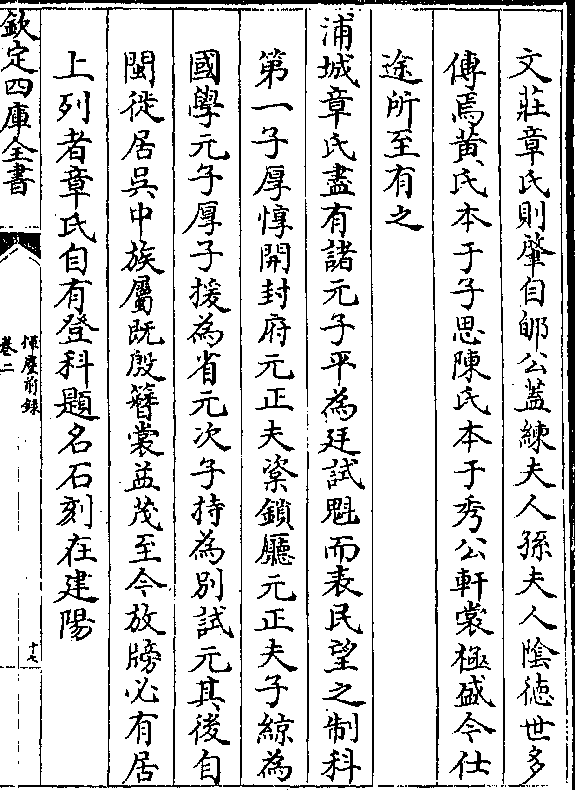 文莊章氏則肇自郇公蓋練夫人孫夫人陰徳世多
傳焉黃氏本于子思陳氏本于秀公軒裳極盛今仕
途所至有之
浦城章氏盡有諸元子平為廷試魁而表民望之制科
第一子厚惇開封府元正夫楶鎖廳元正夫子綡為
國學元子厚子援為省元次子持為别試元其後自
閩徙居吳中族屬既殷簪裳益茂至今放牓必有居
上列者章氏自有登科題名石刻在建陽
欽定四庫全書
揮麈前録
卷二
十七